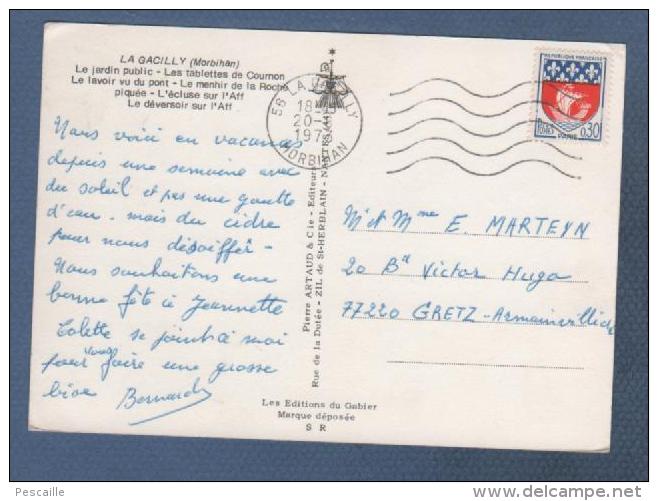 LA GACILLY (Morbihan)
Le jardin public - Las tablettes de Cournon
Le lavoir vu du pont - Le menhir de la Roche
piquée - L'écluse sur l'Aff
Le déversoir sur l'Aff
Nous voici en vacances
depuis une semaine avec
du soleil et pas une goutte
d'eau. mais du cidre
pour nous désoiffer -
Nous souhaitons une
bonne fête à Jeannette
Colette se joint à moi
pour vous faire une grosse
bise Bernard
Pierre ARTAUD & Cie - Editeurs
Rue de la Dutée - ZIL de St-HERBLAIN - NANTES
Les Editions du Gabier
Marque déposée
S R
56 LA GACILLY
18
20-
197
MORBIHAN
REPUBLIQUE FRANÇAISE
POSTES 0,30
PARIS
Mr et Mme E. MARTEYN
20 Bd Victor Hugo
77220 GRETZ-Armainvilliers
Pescaille
www.delcampe.net